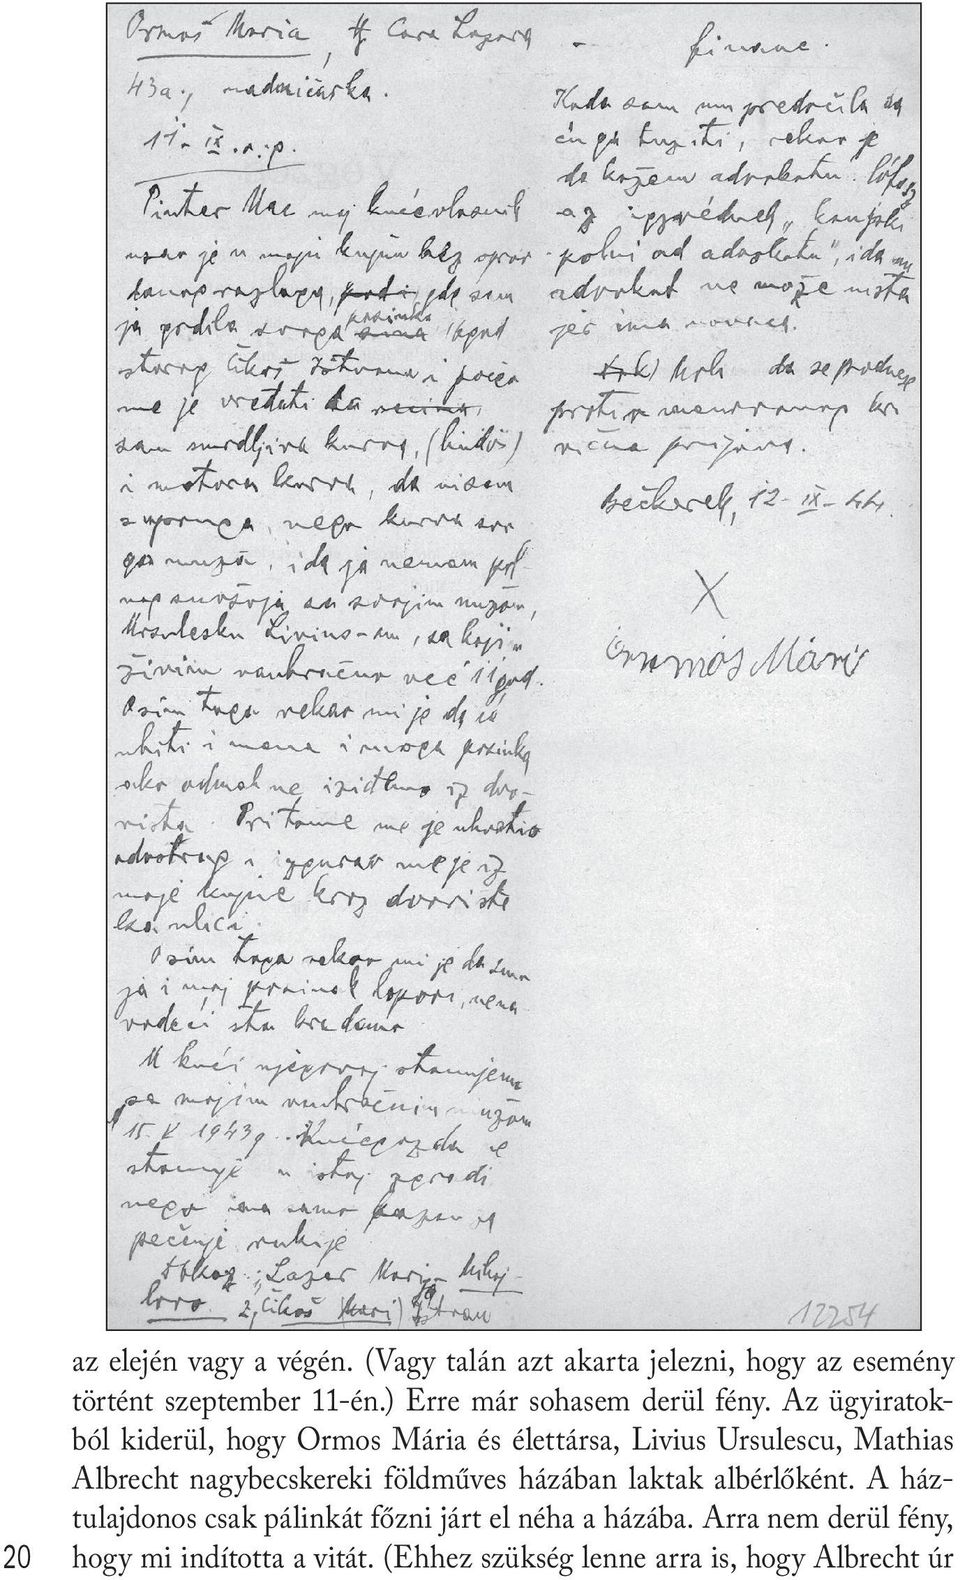 Ormoš Maria, Cara Lazara
43a., nadničarka.
11. IX. o.g.
Pinter Mac moj kućevlasnik
ušao je u moju kujnu bez opravdanog razloga, gde sam
ja grdila svoga posinka 16 god
starog Čikoš Ištvana i počeo
me je vređati da
sam smrdljiva kurva, (büdös)
i matora kurva, da nisam
supruga, nego kurva svoga muža, i da ja nemam
sa svojim mužom,
Ursulesku Livius-om, sa kojim
živim vanbračno već 11 god.
Osim toga rekao mi je da će
ubiti i mene i moga posinka
ako odmah ne iziđemo iz dvorišta. Pri tome me je uhvatio
odostrag i izgurao me je iz
moje kujne kroz dvorište
ka ulici.
Osim toga rekao mi je da smo
ja i moj posinak lopovi, nenavodeći šta krademo
U kući njegovoj stanujem
sa mojim vanbračnim mužom
15. V 1943 g. Kućegazda ne
stanuje u istoj zgradi
nego ima samo kazan za
pečenje rakije
Dokaz: Lazar Marija
2, Čikoš Ištvan
finane.
Kada sam mu predočila da
ću ga tužiti, rekao je
da kažem advokatu "lófasz
az ügyvédnek" konjski
od advokata", i da mi
advokat ne može ništa
jer ima novaca.
Molim da se podnese
protiv menovanog krivična prijava.
Bečkerek, 12-IX-44.
X
Ormós Mári
12254
az elején vagy a végén. (Vagy talán azt akarta jelezni, hogy az esemény
történt szeptember 11-én.) Erre már sohasem derül fény. Az ügyiratok-
ból kiderül, hogy Ormos Mária és élettársa, Livius Ursulescu, Mathias
Albrecht nagybecskereki földműves házában laktak albérlőként. A ház-
tulajdonos csak pálinkát főzni járt el néha a házába. Arra nem derül fény,
20 hogy mi indította a vitát. (Ehhez szükség lenne arra is, hogy Albrecht úr